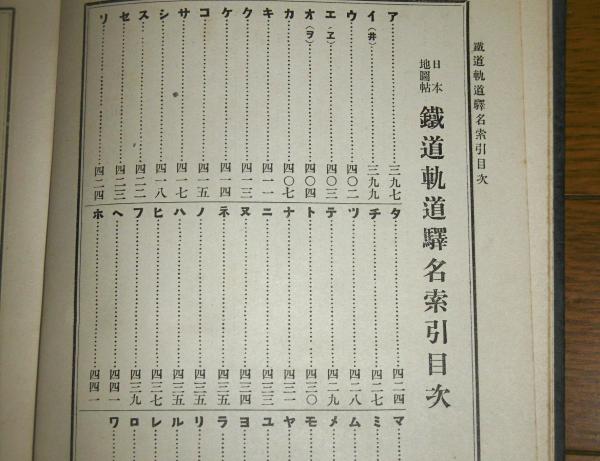 鐵道軌道驛名索引目次
日本
地圖帖
鐵道軌道驛名索引目次
ア……三九七
イ(井)……三九九
ウ……四〇二
エ(ヱ)……四〇三
オ(ヲ)……四〇四
カ……四〇七
キ……四一一
ク……四一三
ケ……四一四
コ……四一五
サ……四一七
シ……四一八
ス……四二二
セ……四二三
ソ……四二四
タ……四二四
チ……四二七
ツ……四二八
テ……四二九
ト……四三〇
ナ……四三一
ニ……四三三
ヌ……四三四
ネ……四三五
ノ……四三五
ハ……四三五
ヒ……四三七
フ……四三九
ヘ……四四一
ホ……四四一
マ
ミ
ム
メ
モ
ヤ
ユ
ヨ
ラ
リ
ル
レ
ロ
ワ